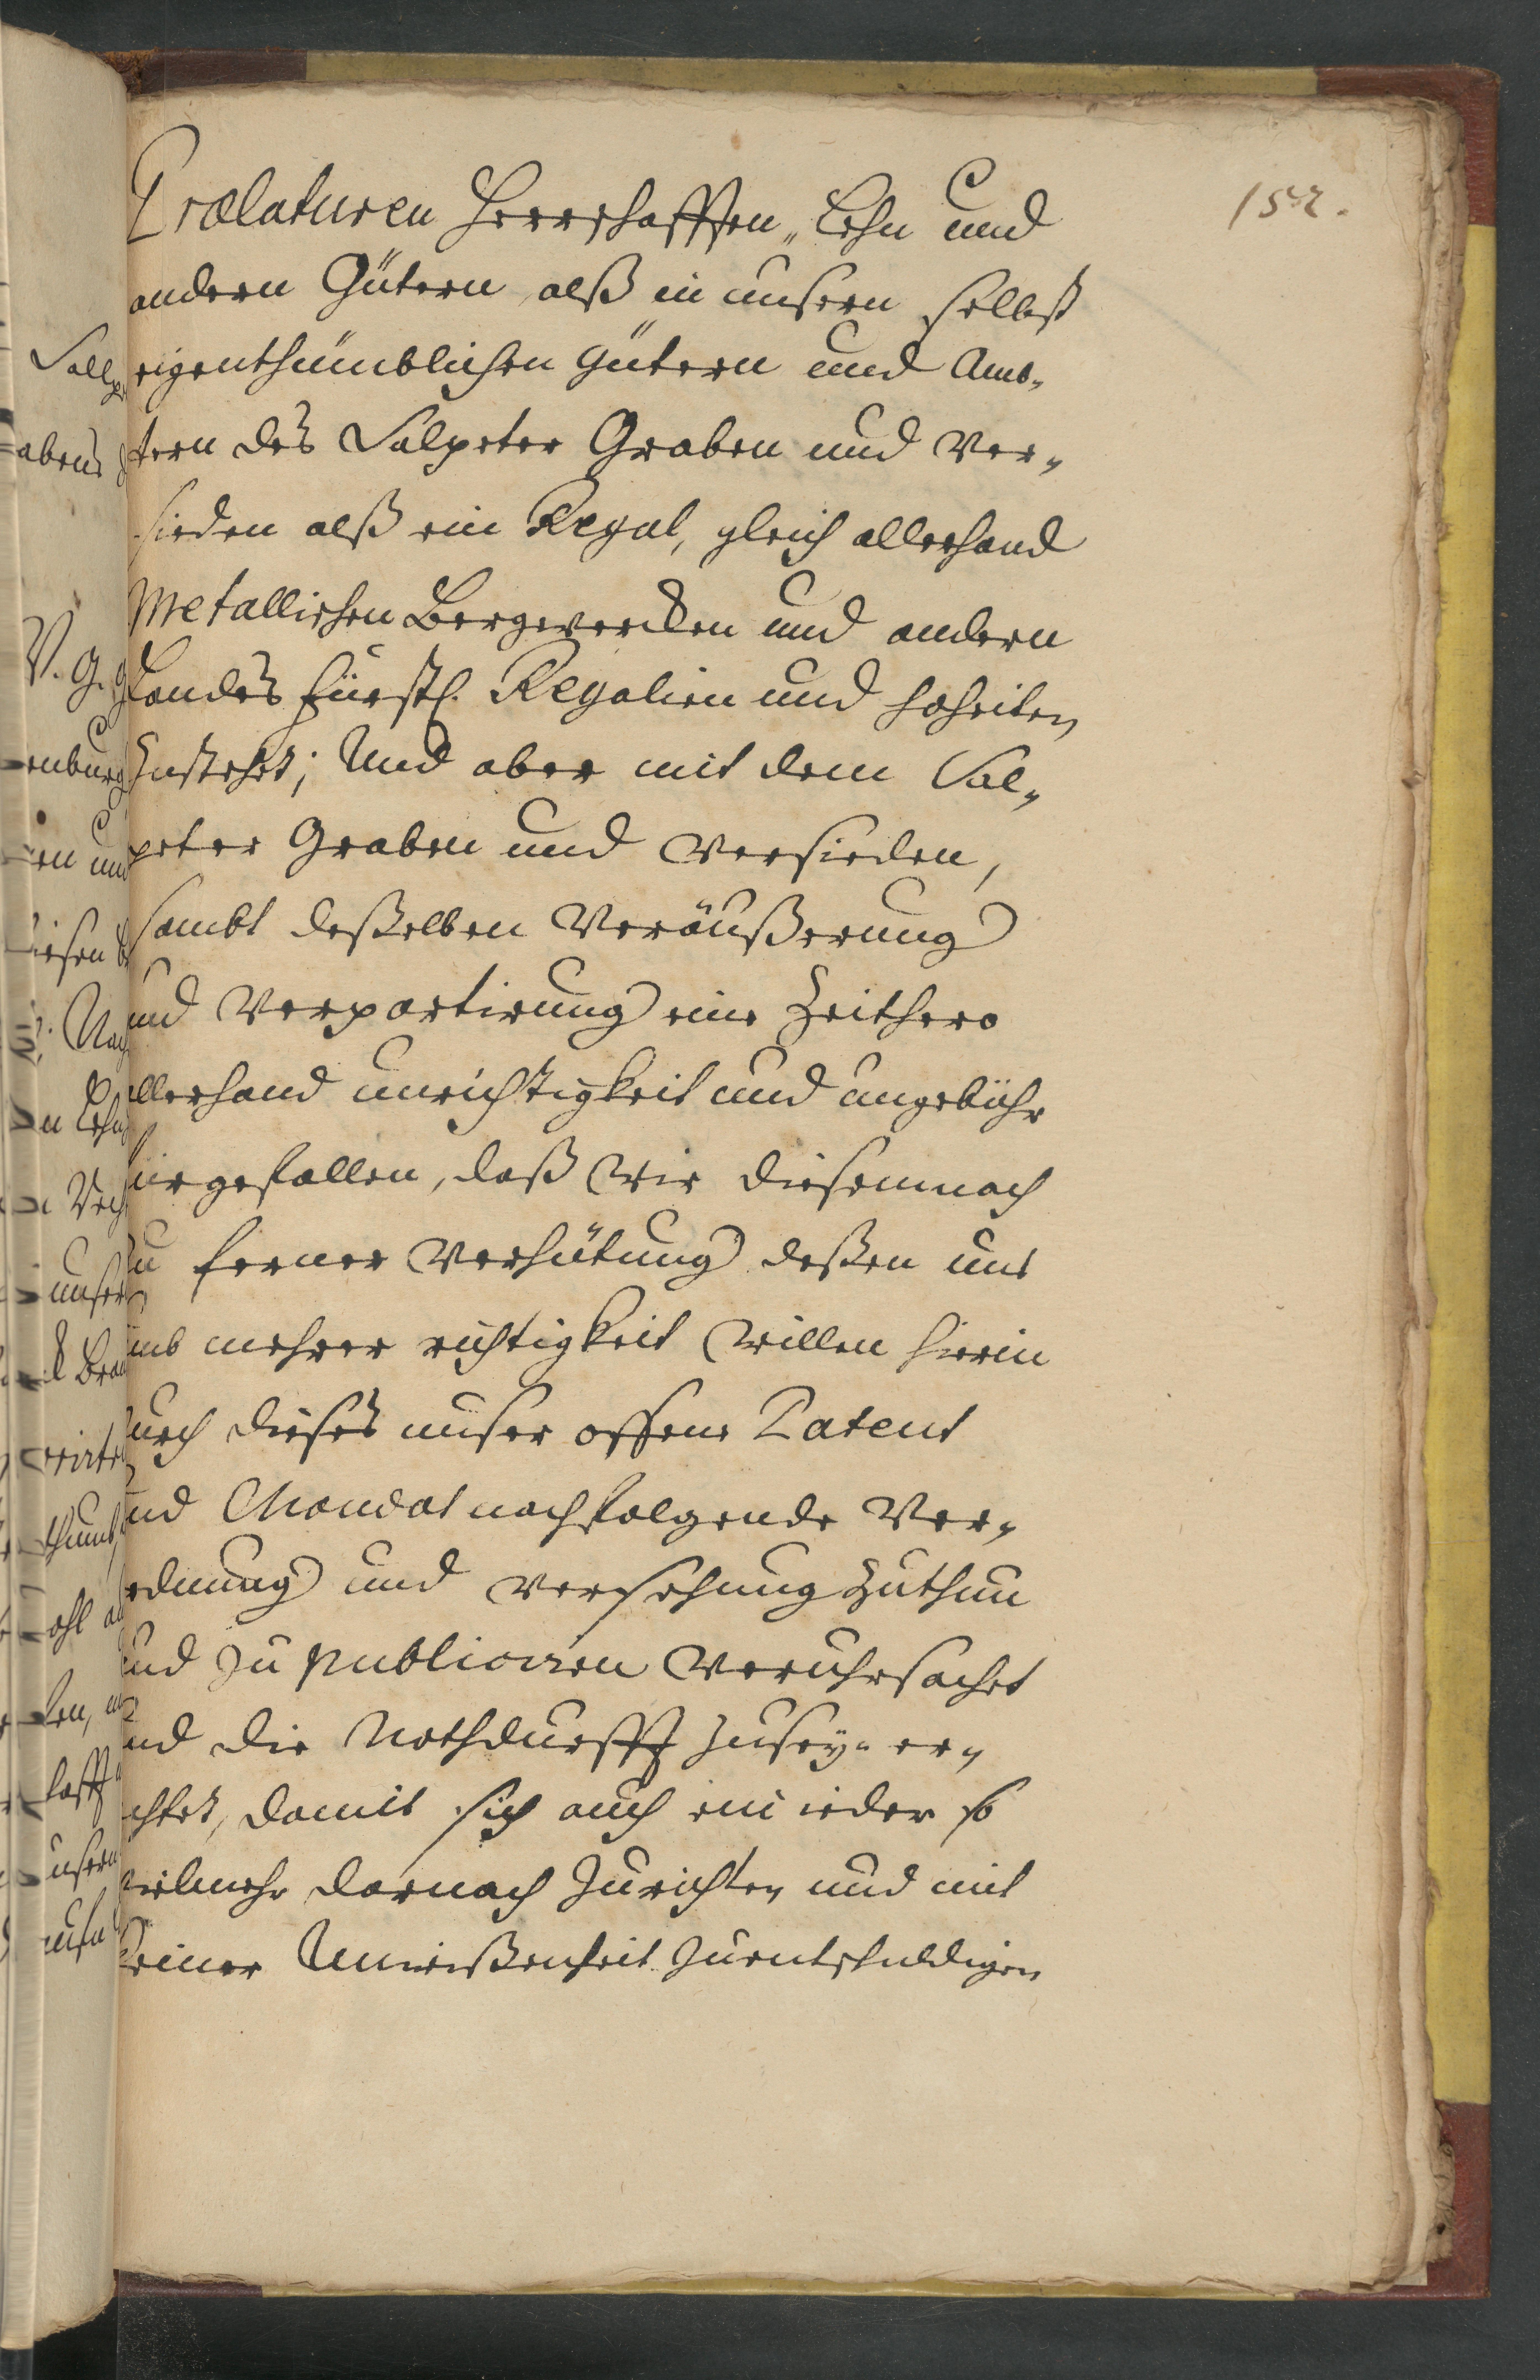 152.
Prælaturen Herrschafften, Lehn und
andern Gütern alß in unsern selbst
eigenthümblichen Gütern und Amb-
tern des Salpeter Graben und Ver-
sieden alß ein Regal, gleich allerhand
Metallischen Bergwercken und andern
Landes Fürstl. Regalien und hoheiten
Zustehet; Und aber mit dem Sal-
peter Graben und Versieden,
sambt deßelben Veräußerung
und Verpartirung eine Zeithero
allerhand unrichtigkeit und ungebühr
fürgefallen, daß Wir diesemnach
Zu ferner Verhütung deßen und
umb mehrer richtigkeit willen hierin
durch dieses unser offene Patent
und Mandat nachfolgende Ver-
ordnung und versehung Zuthun
und Zu publiciren Veruhrsachet
und die Nothdurfft Zuseyn er-
achtet, damit sich auch ein ieder so
vielmehr darnach Zurichten und mit
keiner Unwißenheit Zuentschuldigen